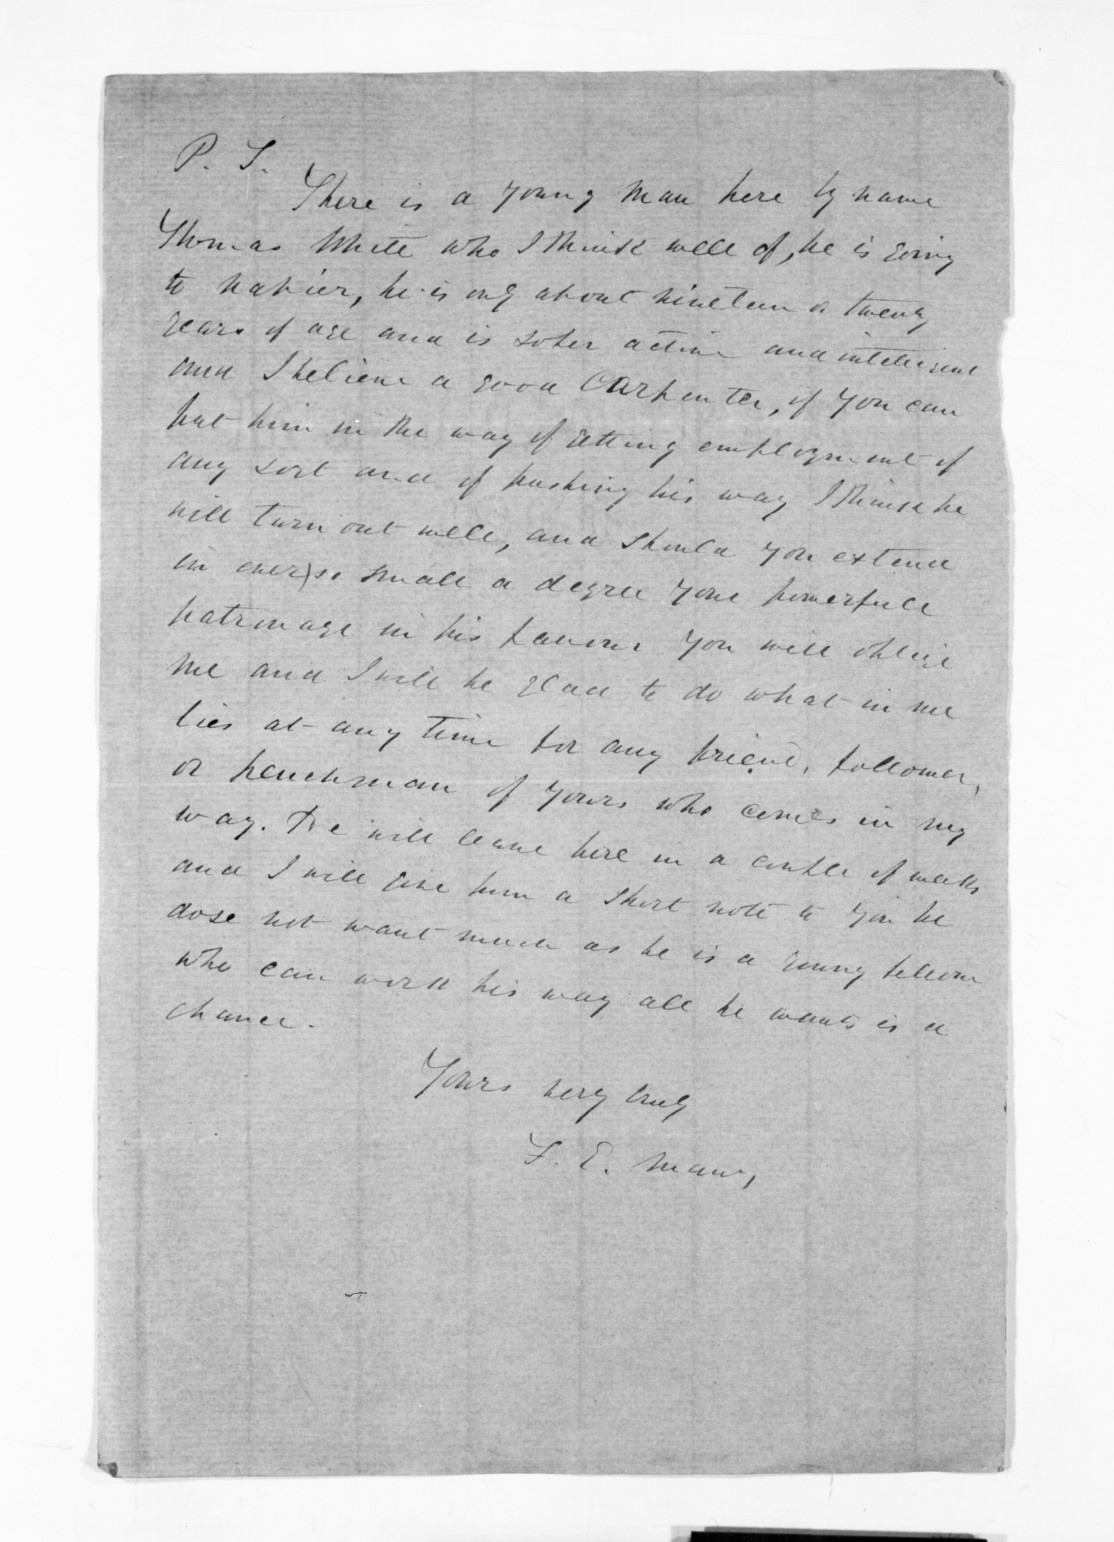 P. S.
There is a young man here by name
Thomas White who I think well of, he is going
to Napier, he is only about nineteen or twenty
years of age and is sober active and intelligent
and I believe a good Carpenter, if you can
put him in the way of getting employment of
any sort and of pushing his way I think he
will turn out well, and should you extend
in ever so small a degree your powerfull
patronage in his favour you will oblige
me and I will be glad to do what in me
lies at any time for any friend, follower,
or henchman of yours who comes in my
way. He will leave here in a couple of weeks
and I will give him a short note to you he
dose not want much as he is a young fellow
who can work his way all he wants is a
chance.
Yours very truly
F. E.